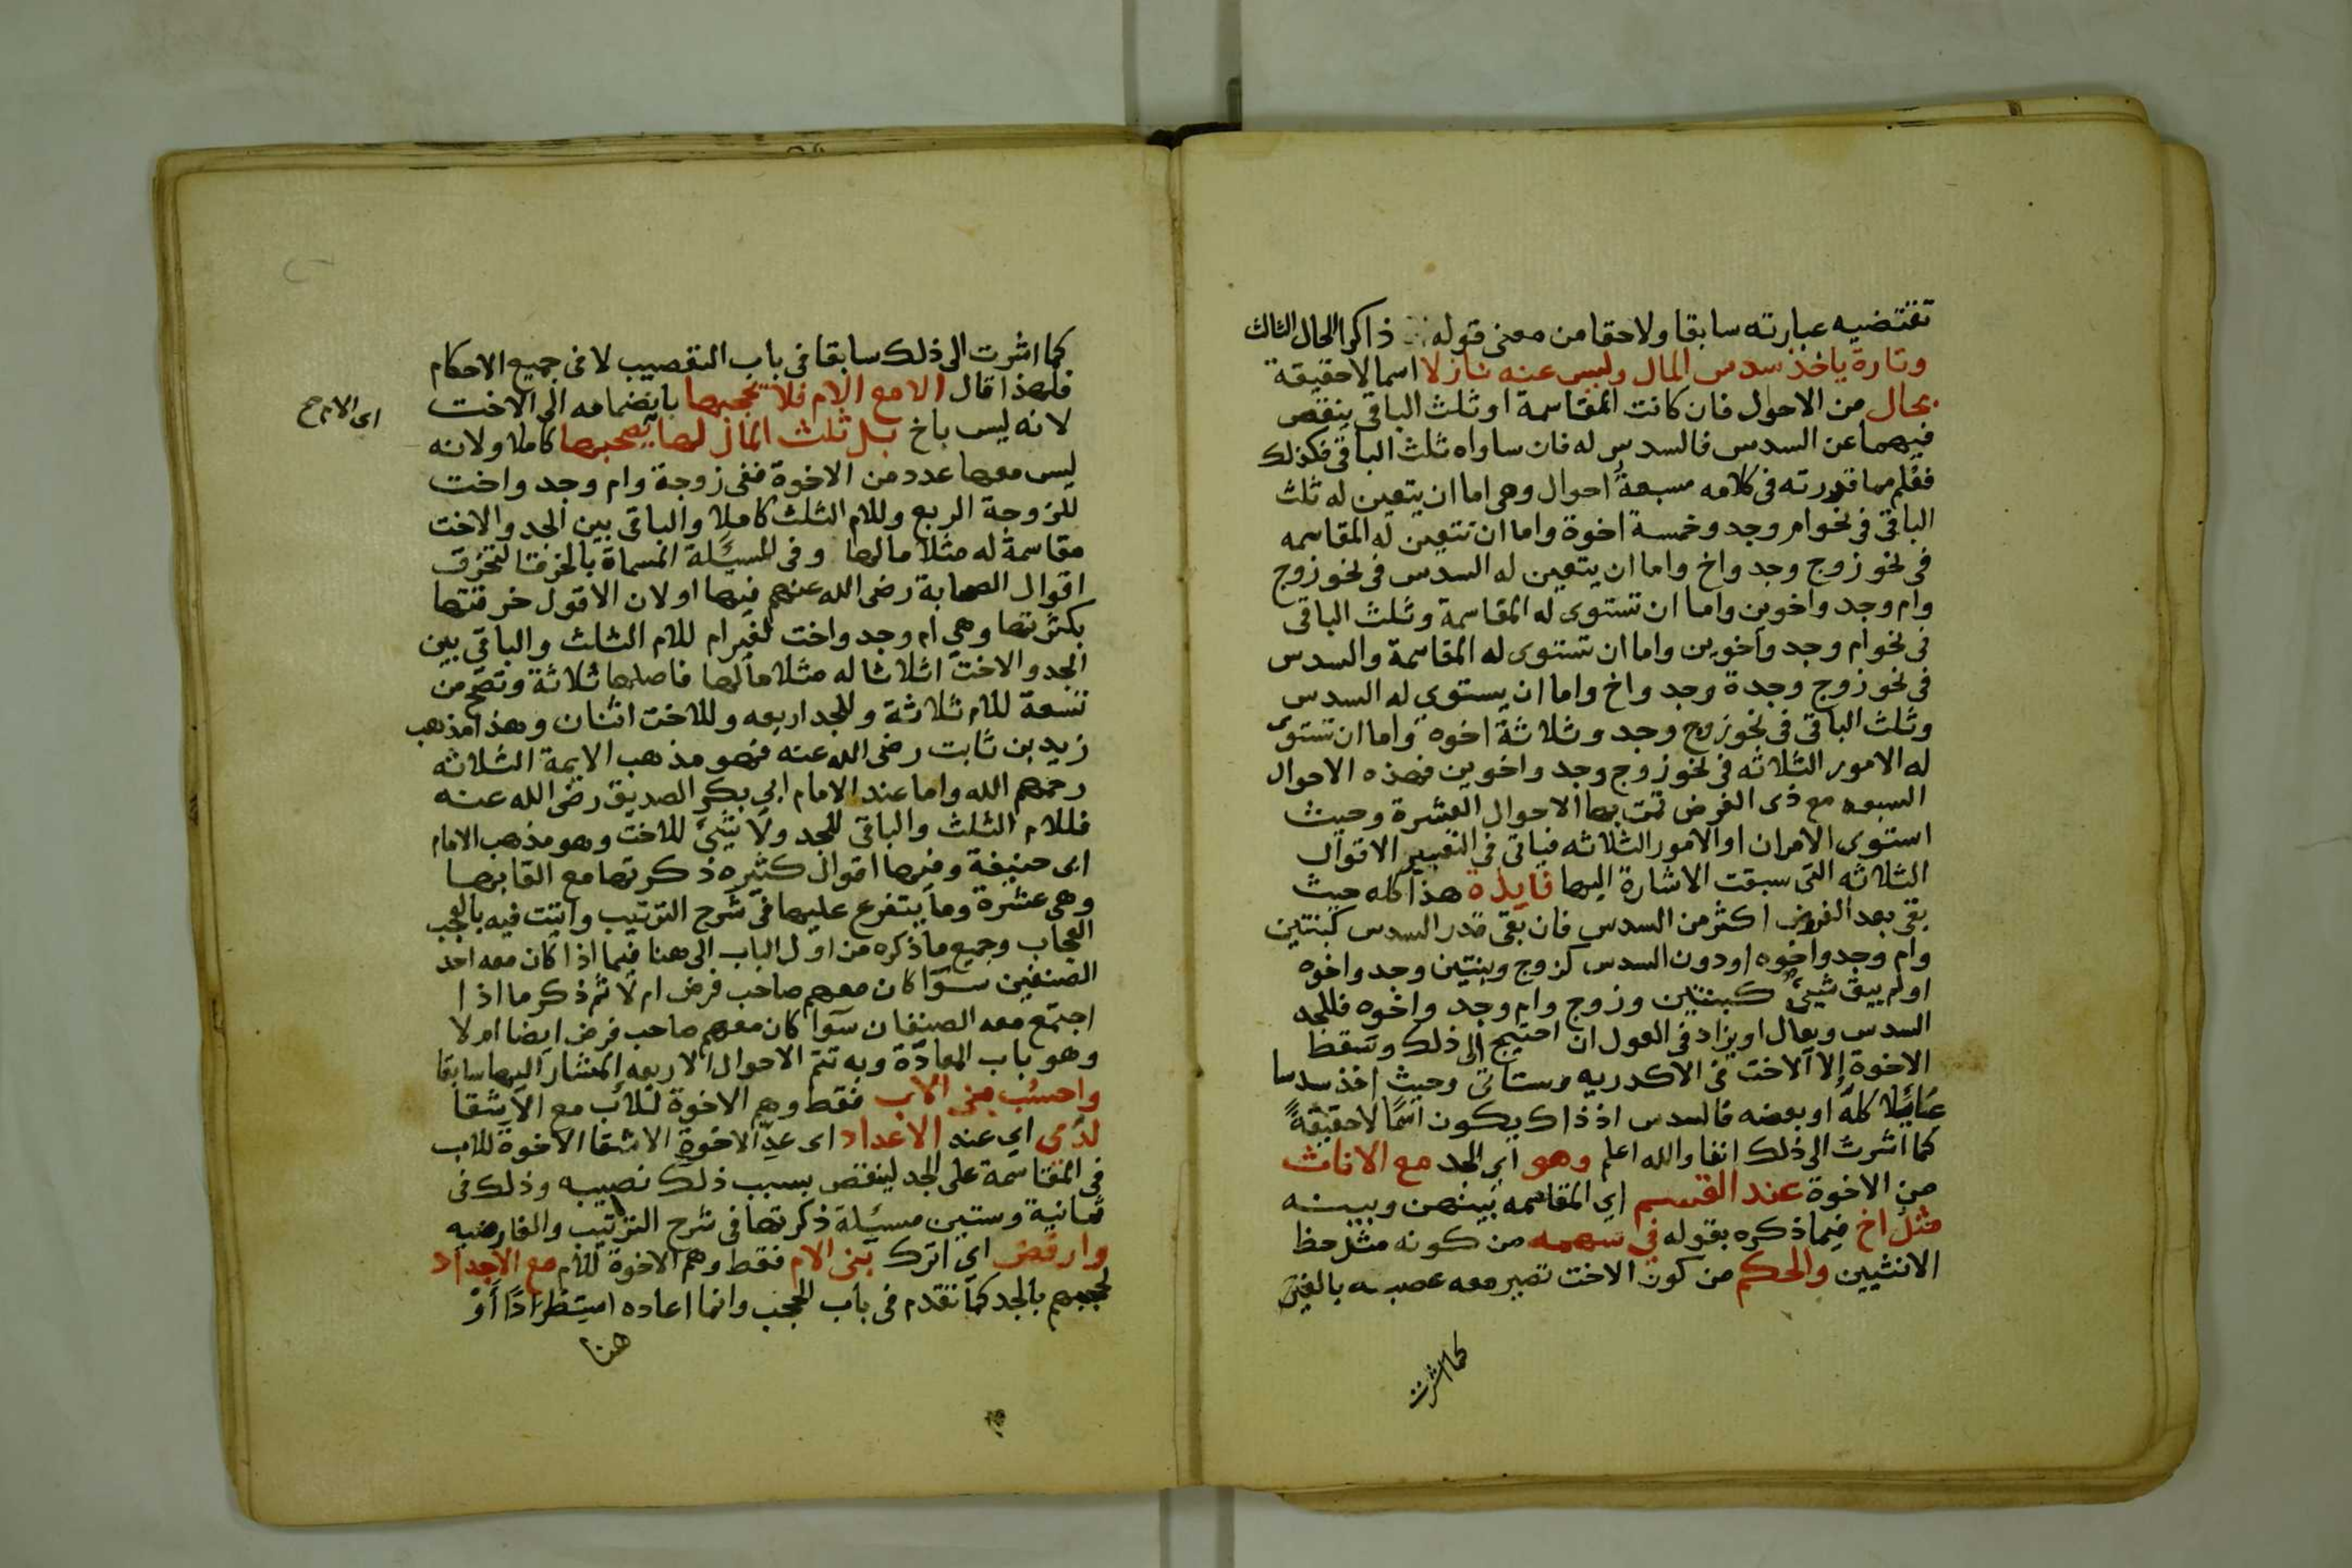 تقتضيه عبارته سابقا ولاحقا من معنى قوله ذاكرا الحال الثالث
وتارة ياخذ سدس المال وليس عنه نازلا اسما لا حقيقة
بحال من الاحوال فان كانت المقاسمة او ثلث الباقي ينقص
فيهما عن السدس فالسدس له فان ساواه ثلث الباقي فكذلك
فعلم مما قدرته في كلامه سبعة احوال وهي اما ان يتعين له ثلث
الباقي في نحو ام وجد وخمسة اخوة واما ان تتعين له المقاسمه
في نحو زوج وجد واخ واما ان يتعين له السدس في نحو زوج
وام وجد واخوين واما ان تستوى له المقاسمة وثلث الباقى
في نحو ام وجد واخوين واما ان تستوى له المقاسمة والسدس
في نحو زوج وجدة وجد واخ واما ان يستوي له السدس
وثلث الباقي في نحو زوج وجد وثلاثة اخوه واما ان تستوى
له الامور الثلاثه في نحو زوج وجد واخوين فهذه الاحوال
السبعه مع ذى الفرض تمت بها الاحوال العشرة وحيث
استوى الامران او الامور الثلاثه فياتى في التعبير الاقوال
الثلاثه التى سبقت الاشارة اليها فايدة هذا كله حيث
بقى بعد الفرض اكثر من السدس فان بقى قدر السدس كبنتين
وام وجد واخوه او دون السدس كزوج وبنتين وجد واخوه
او لم يبق شيئ كبنتين وزوج وام وجد واخوه فللجد
السدس ويعال او يزاد في العول ان احتيج الى ذلك وتسقط
الاخوة الا الاخت في الاكدريه وستاتى وحيث اخذ سدسا
عائلا كله او بعضه فالسدس اذ ذاك يكون اسمًا لا حقيقةً
كما اشرت الى ذلك انفا والله اعلم وهو اي الجد مع الاناث
من الاخوة عند القسم اي المقاسمه بينهن وبينه
مثل اخ فيما ذكره بقوله في سهمه من كونه مثل حظ
الانثيين والحكم من كون الاخت تصير معه عصبه بالغير
كما اشرت
كما اشرت الى ذلك سابقا في باب التعصيب لا في جميع الاحكام
فلهذا قال الا مع الام فلا تحجبها بانضمامه الى الاخت
اى الام صح
لانه ليس باخ بل ثلث المال لها يصحبها كاملا ولانه
ليس معها عدد من الاخوة ففى زوجة وام وجد واخت
للزوجة الربع وللام الثلث كاملا والباقي بين الجد والاخت
مقاسمة له مثلا مالها وفي المسئلة المسماة بالخرقا لتخرق
اقوال الصحابة رضى الله عنهم فيها او لان الاقول خرقتها
بكثرتها وهي ام وجد واخت لغير ام للام الثلث والباقي بين
الجد والاخت اثلاثا له مثلا مالها فاصلها ثلاثة وتصح من
تسعة للام ثلاثة وللجد اربعه وللاخت اثنان وهذا مذهب
زيد بن ثابت رضى الله عنه فهو مذهب الايمة الثلاثه
رحمهم الله واما عند الامام ابي بكر الصديق رضى الله عنه
فللام الثلث والباقي للجد ولا شئ للاخت وهو مذهب الامام
ابى حنيفة وفيها اقوال كثيره ذكرتها مع القابها
وهى عشرة وما يتفرع عليها في شرح الترتيب واتيت فيه بالعجب
العجاب وجميع ما ذكره من اول الباب الى هنا فيما اذا كان معه احد
الصنفين سوآ كان معهم صاحب فرض ام لا ثم ذكر ما اذا
اجتمع معه الصنفان سوآ كان معهم صاحب فرض ايضا ام لا
وهو باب المعادّة وبه تتم الاحوال الاربعه المشار اليها سابقا
واحسب بنى الاب فقط وهم الاخوة للاب مع الاشقا
لدى اي عند الاعداد اى عدّ الاخوة الاشقا الاخوة للاب
في المقاسمة على الجد لينقص بسبب ذلك نصيبه وذلك في
ثمانية وستين مسئلة ذكرتها في شرح الترتيب والفارضيه
وارفض اي اترك بنى الام فقط وهم الاخوة للام مع الاجداد
لحجبهم بالجد كما تقدم في باب الحجب وانما اعاده استطرادًا أو
هنا